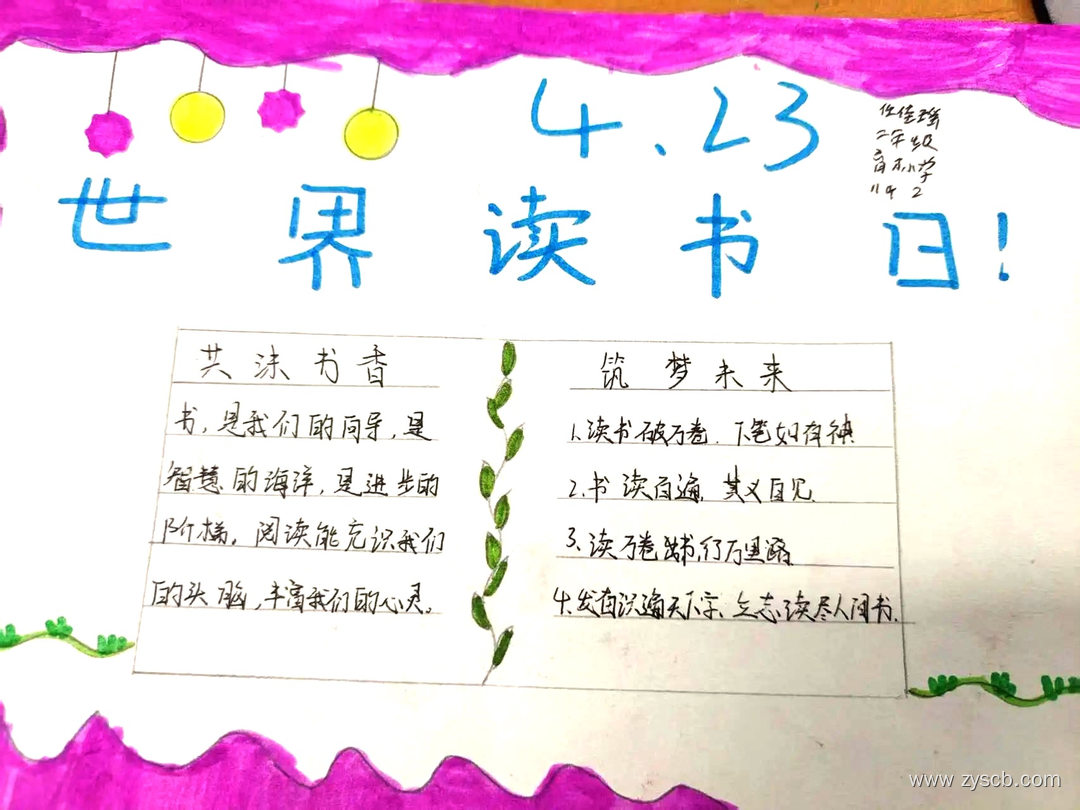 4.23
世界读书日!
二年级
共沫书香
书,是我们的向导,是
智慧的海洋,是进步的
阶梯。阅读能充识我们
的头脑,丰富我们的心灵。
筑梦未来
1.读书破万卷.下笔如有神.
2.书读百遍,其义自见.
3.读万卷书,行万里路.
4.发奋识遍天下字、立志读尽人间书.
www.zyscb.com